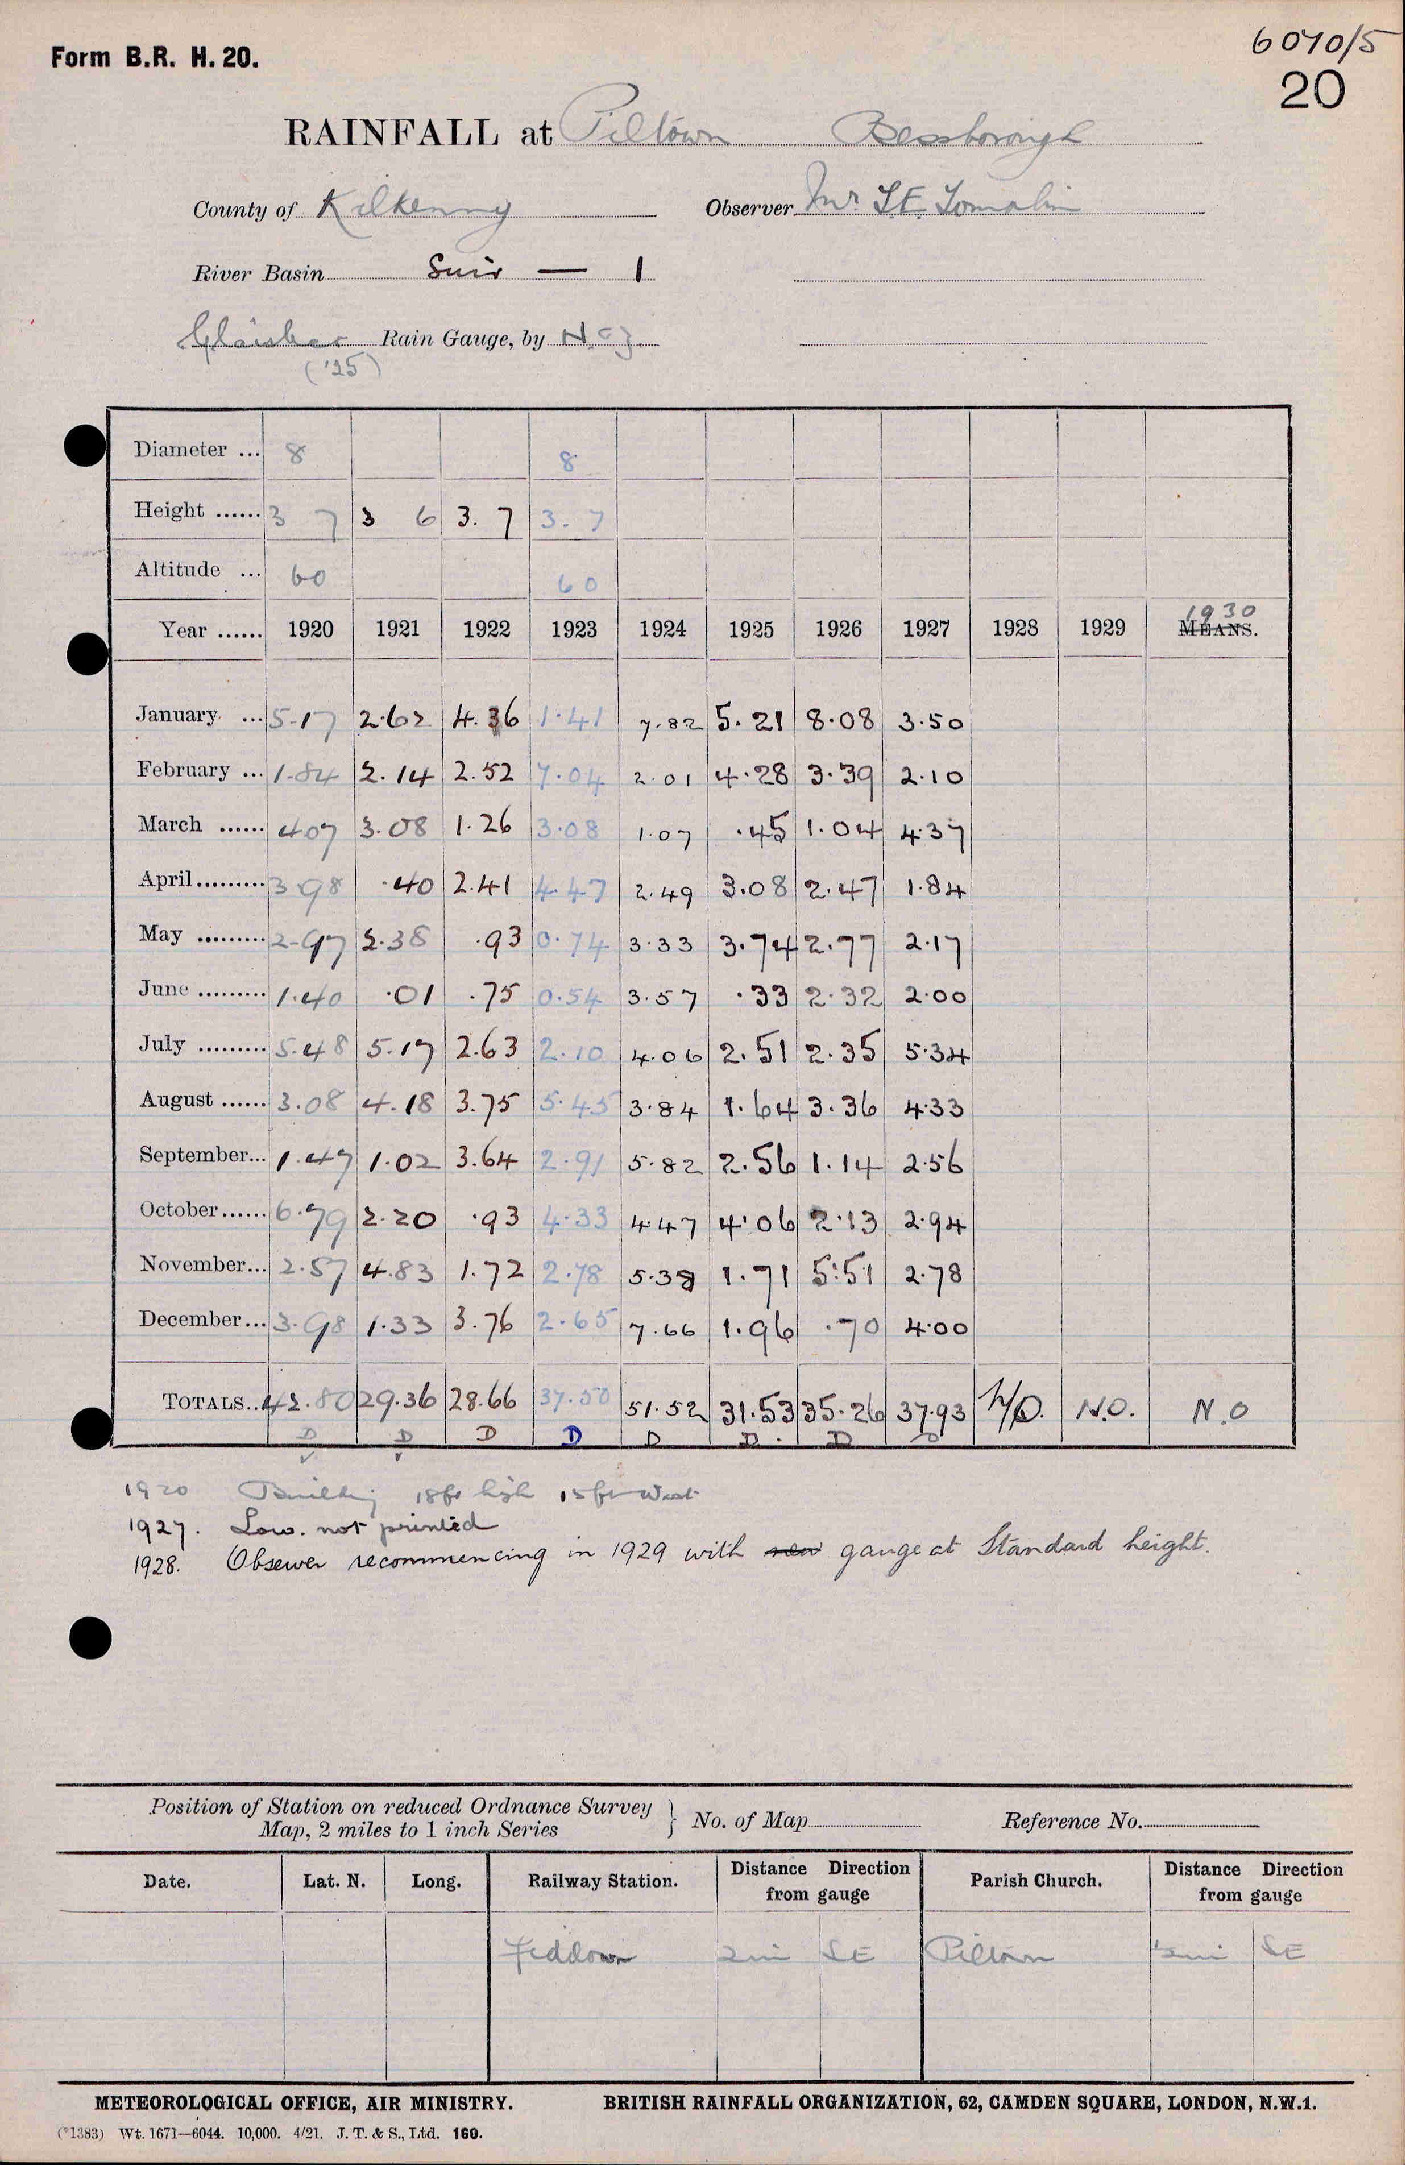 6070/5
Form B.R. H. 20.
20
RAINFALL at Piltown Bessborough
County of Kilkenny Observer Mr T.E. Tomalin
River Basin Suir — 1
Glaisher Rain Gauge, by N & Z
('25)
Diameter ... 8 8
Height ...... 3 7 3 6 3. 7 3. 7
Altitude ... 60 60
Year ...... 1920 1921 1922 1923 1924 1925 1926 1927 1928 1929 MEANS. 1930
January ... 5.17 2.62 4.36 1.41 7.82 5.21 8.08 3.50
February ... 1.84 2.14 2.52 7.04 2.01 4.28 3.39 2.10
March ...... 4 07 3.08 1.26 3.08 1.07 .45 1.04 4.37
April......... 3.98 .40 2.41 4.47 2.49 3.08 2.47 1.84
May ......... 2.97 2.38 .93 0.74 3.33 3.74 2.77 2.17
June ......... 1.40 .01 .75 0.54 3.57 .33 2.32 2.00
July ......... 5.48 5.17 2.63 2.10 4.06 2.51 2.35 5.34
August ...... 3.08 4.18 3.75 5.45 3.84 1.64 3.36 4.33
September... 1.47 1.02 3.64 2.91 5.82 2.56 1.14 2.56
October...... 6.79 2.20 .93 4.33 4.47 4.06 2.13 2.94
November... 2.57 4.83 1.72 2.78 5.38 1.71 5.51 2.78
December... 3.98 1.33 3.76 2.65 7.66 1.96 .70 4.00
TOTALS.. 42.80 29.36 28.66 37.50 51.52 31.53 35.26 37.93 N/O. N.O. N.O
D D D D D D D D
1920 Building 18ft high 15ft West
1927. Low. not printed
1928. Observer recommencing in 1929 with new gauge at Standard height.
Position of Station on reduced Ordnance Survey
Map, 2 miles to 1 inch Series } No. of Map Reference No.
Date. Lat. N. Long. Railway Station. Distance Direction from gauge Parish Church. Distance Direction from gauge
Fiddown 2mi SE Piltown ½mi SE
METEOROLOGICAL OFFICE, AIR MINISTRY. BRITISH RAINFALL ORGANIZATION, 62, CAMDEN SQUARE, LONDON, N.W.1.
(*1383) Wt. 1671—6044. 10,000. 4/21. J. T. & S., Ltd. 160.